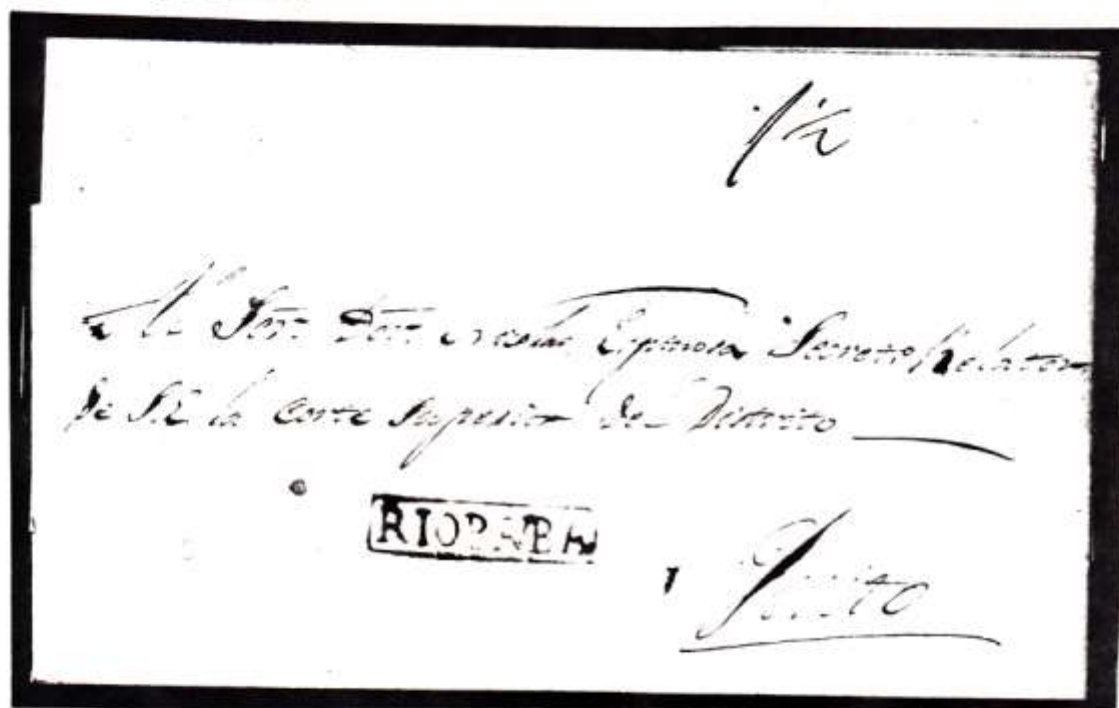 1½
Al Señr Doctr Nicolas Espinosa Secreto Relator
de S.E. la Corte Superior del Distrito
RIOBAMBA
Quito